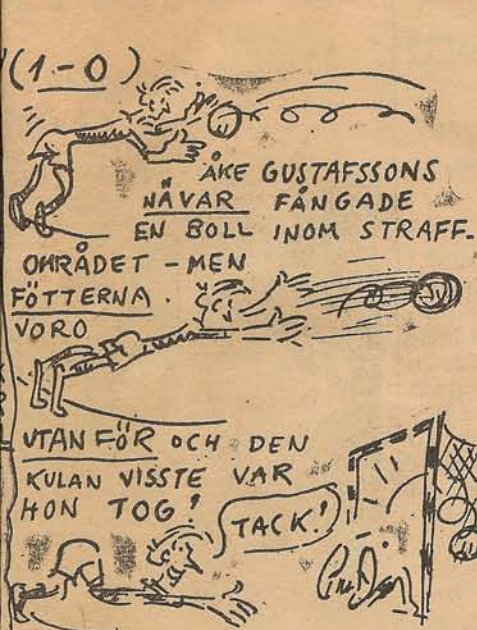 (1-0)
ÅKE GUSTAFSSONS
NÄVAR FÅNGADE
EN BOLL INOM STRAFF-
OMRÅDET - MEN
FÖTTERNA.
VORO
UTANFÖR OCH DEN
KULAN VISSTE VAR
HON TOG!
TACK!